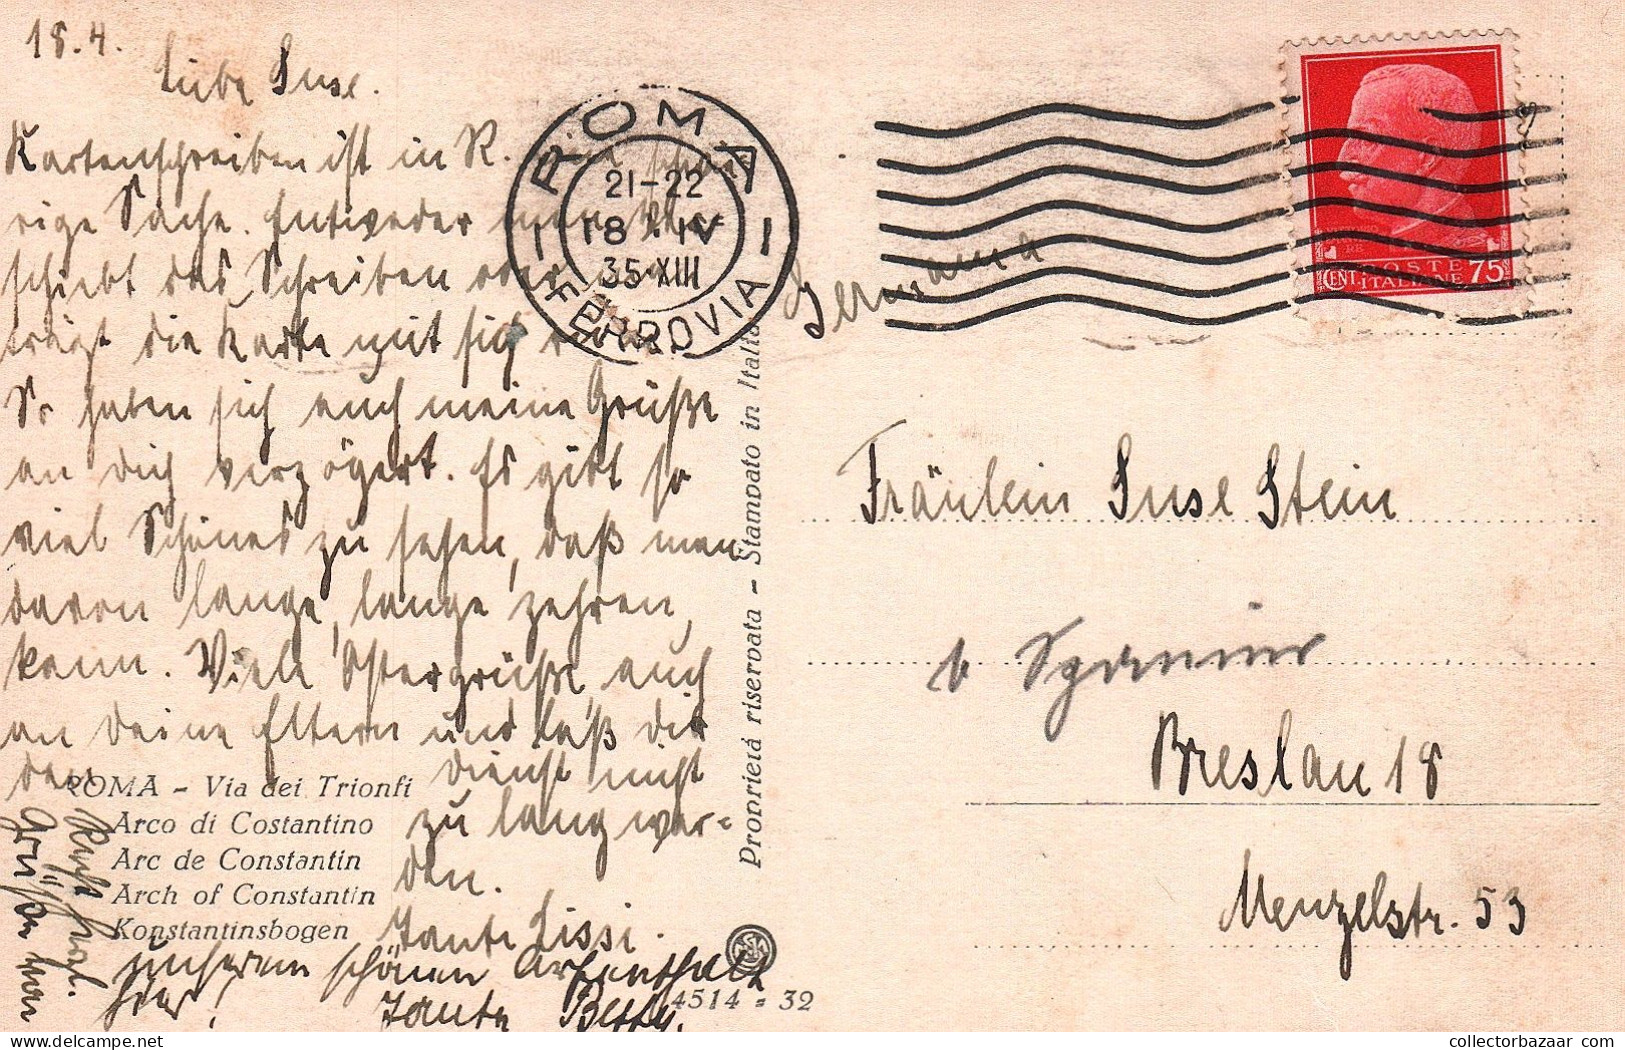 18.4.
Liebe Suse.
Kartenschreiben ist in R. schwie-
rige Sache. Entweder man ver-
schiebt das Schreiben oder man
trägt die Karte mit sich
So haben sich auch meine Grüße
an dich verzögert. Es gibt so
viel Schönes zu sehen, daß man
davon lange, lange zehren
kann. Viele Ostergrüße, auch
an deine Eltern und laß dir
den Dienst nicht
zu lang wer-
den.
Tante Lissi.
Grüße von
unserem schönen Aufenthalt
hier!
Tante Betty.
ROMA - Via dei Trionfi
Arco di Costantino
Arc de Constantin
Arch of Constantin
Konstantinsbogen
4514 - 32
Proprietà riservata - Stampato in Italia
ROMA
21-22
18 · IV
35·XIII
FERROVIA
Germania
POSTE
ITALIANE
CENT. 75
Fräulein Suse Stein
Breslau 18
Menzelstr. 53
collectorbazaar.com